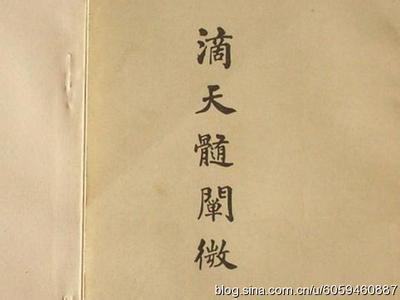 滴天髓闡微
blog.sina.com.cn/u/6059460887